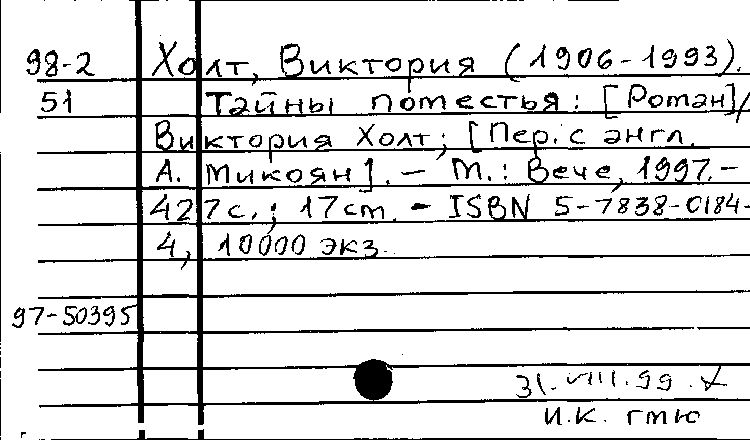 98-2 Холт, Виктория (1906-1993).
51 Тайны поместья: [Роман]/
Виктория Холт; [Пер. с англ.
А. Микоян]. - М.: Вече, 1997.-
427 с.; 17 см. - ISBN 5-7838-0184-
4, 10000 экз.
97-50395
31.VIII.99.
И.К. гмю